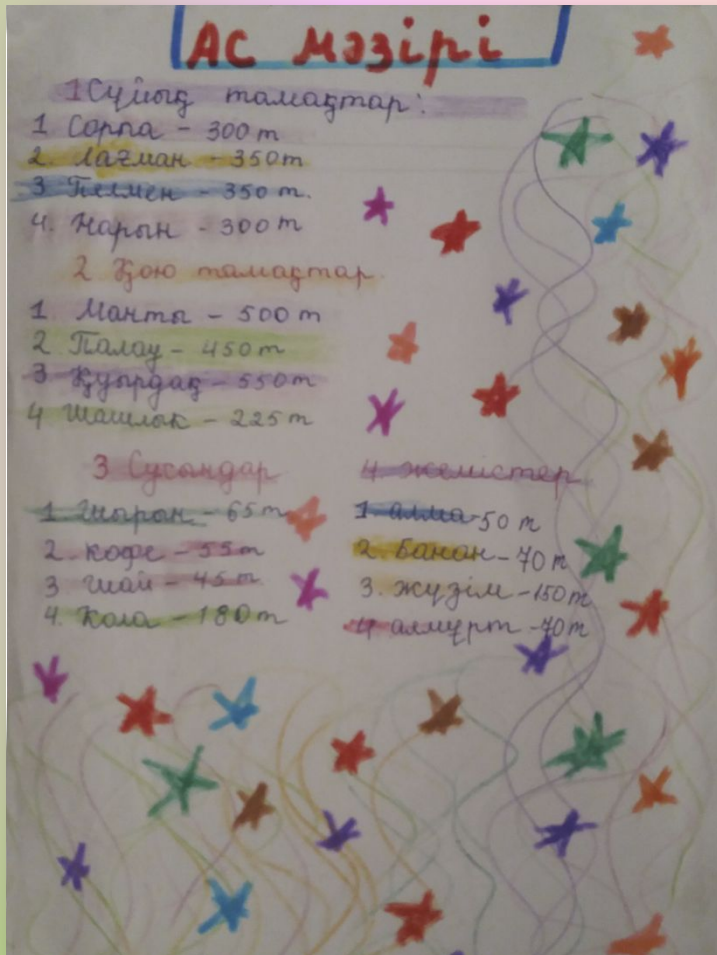 АС мәзірі
1 Сұйық тамақтар:
1. Сорпа - 300 т
2. Лағман - 350 т
3 Пелмен - 350 т.
4. Нарын - 300 т
2 Қою тамақтар
1. Манты - 500 т
2 Палау - 450 т
3 Қуырдақ - 550 т
4 Шашлык - 225 т
3 Сусындар
1 Шырын - 65 т
2. кофе - 55 т
3 шай - 45 т.
4. Кола - 180 т
4 жемістер
1 алма - 50 т
2. Банан - 70 т
3. жүзім - 150 т
4 алмұрт - 70 т